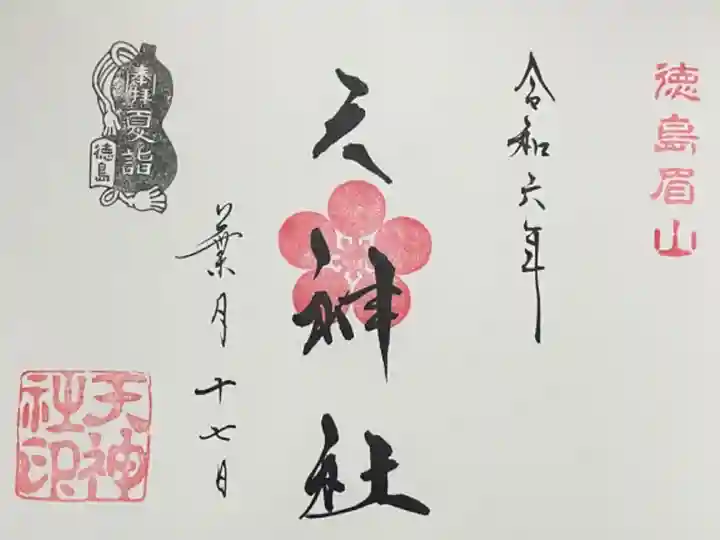 徳島眉山
令和六年
天神社
葉月十七日
奉拝
夏詣
徳島
天神
社印